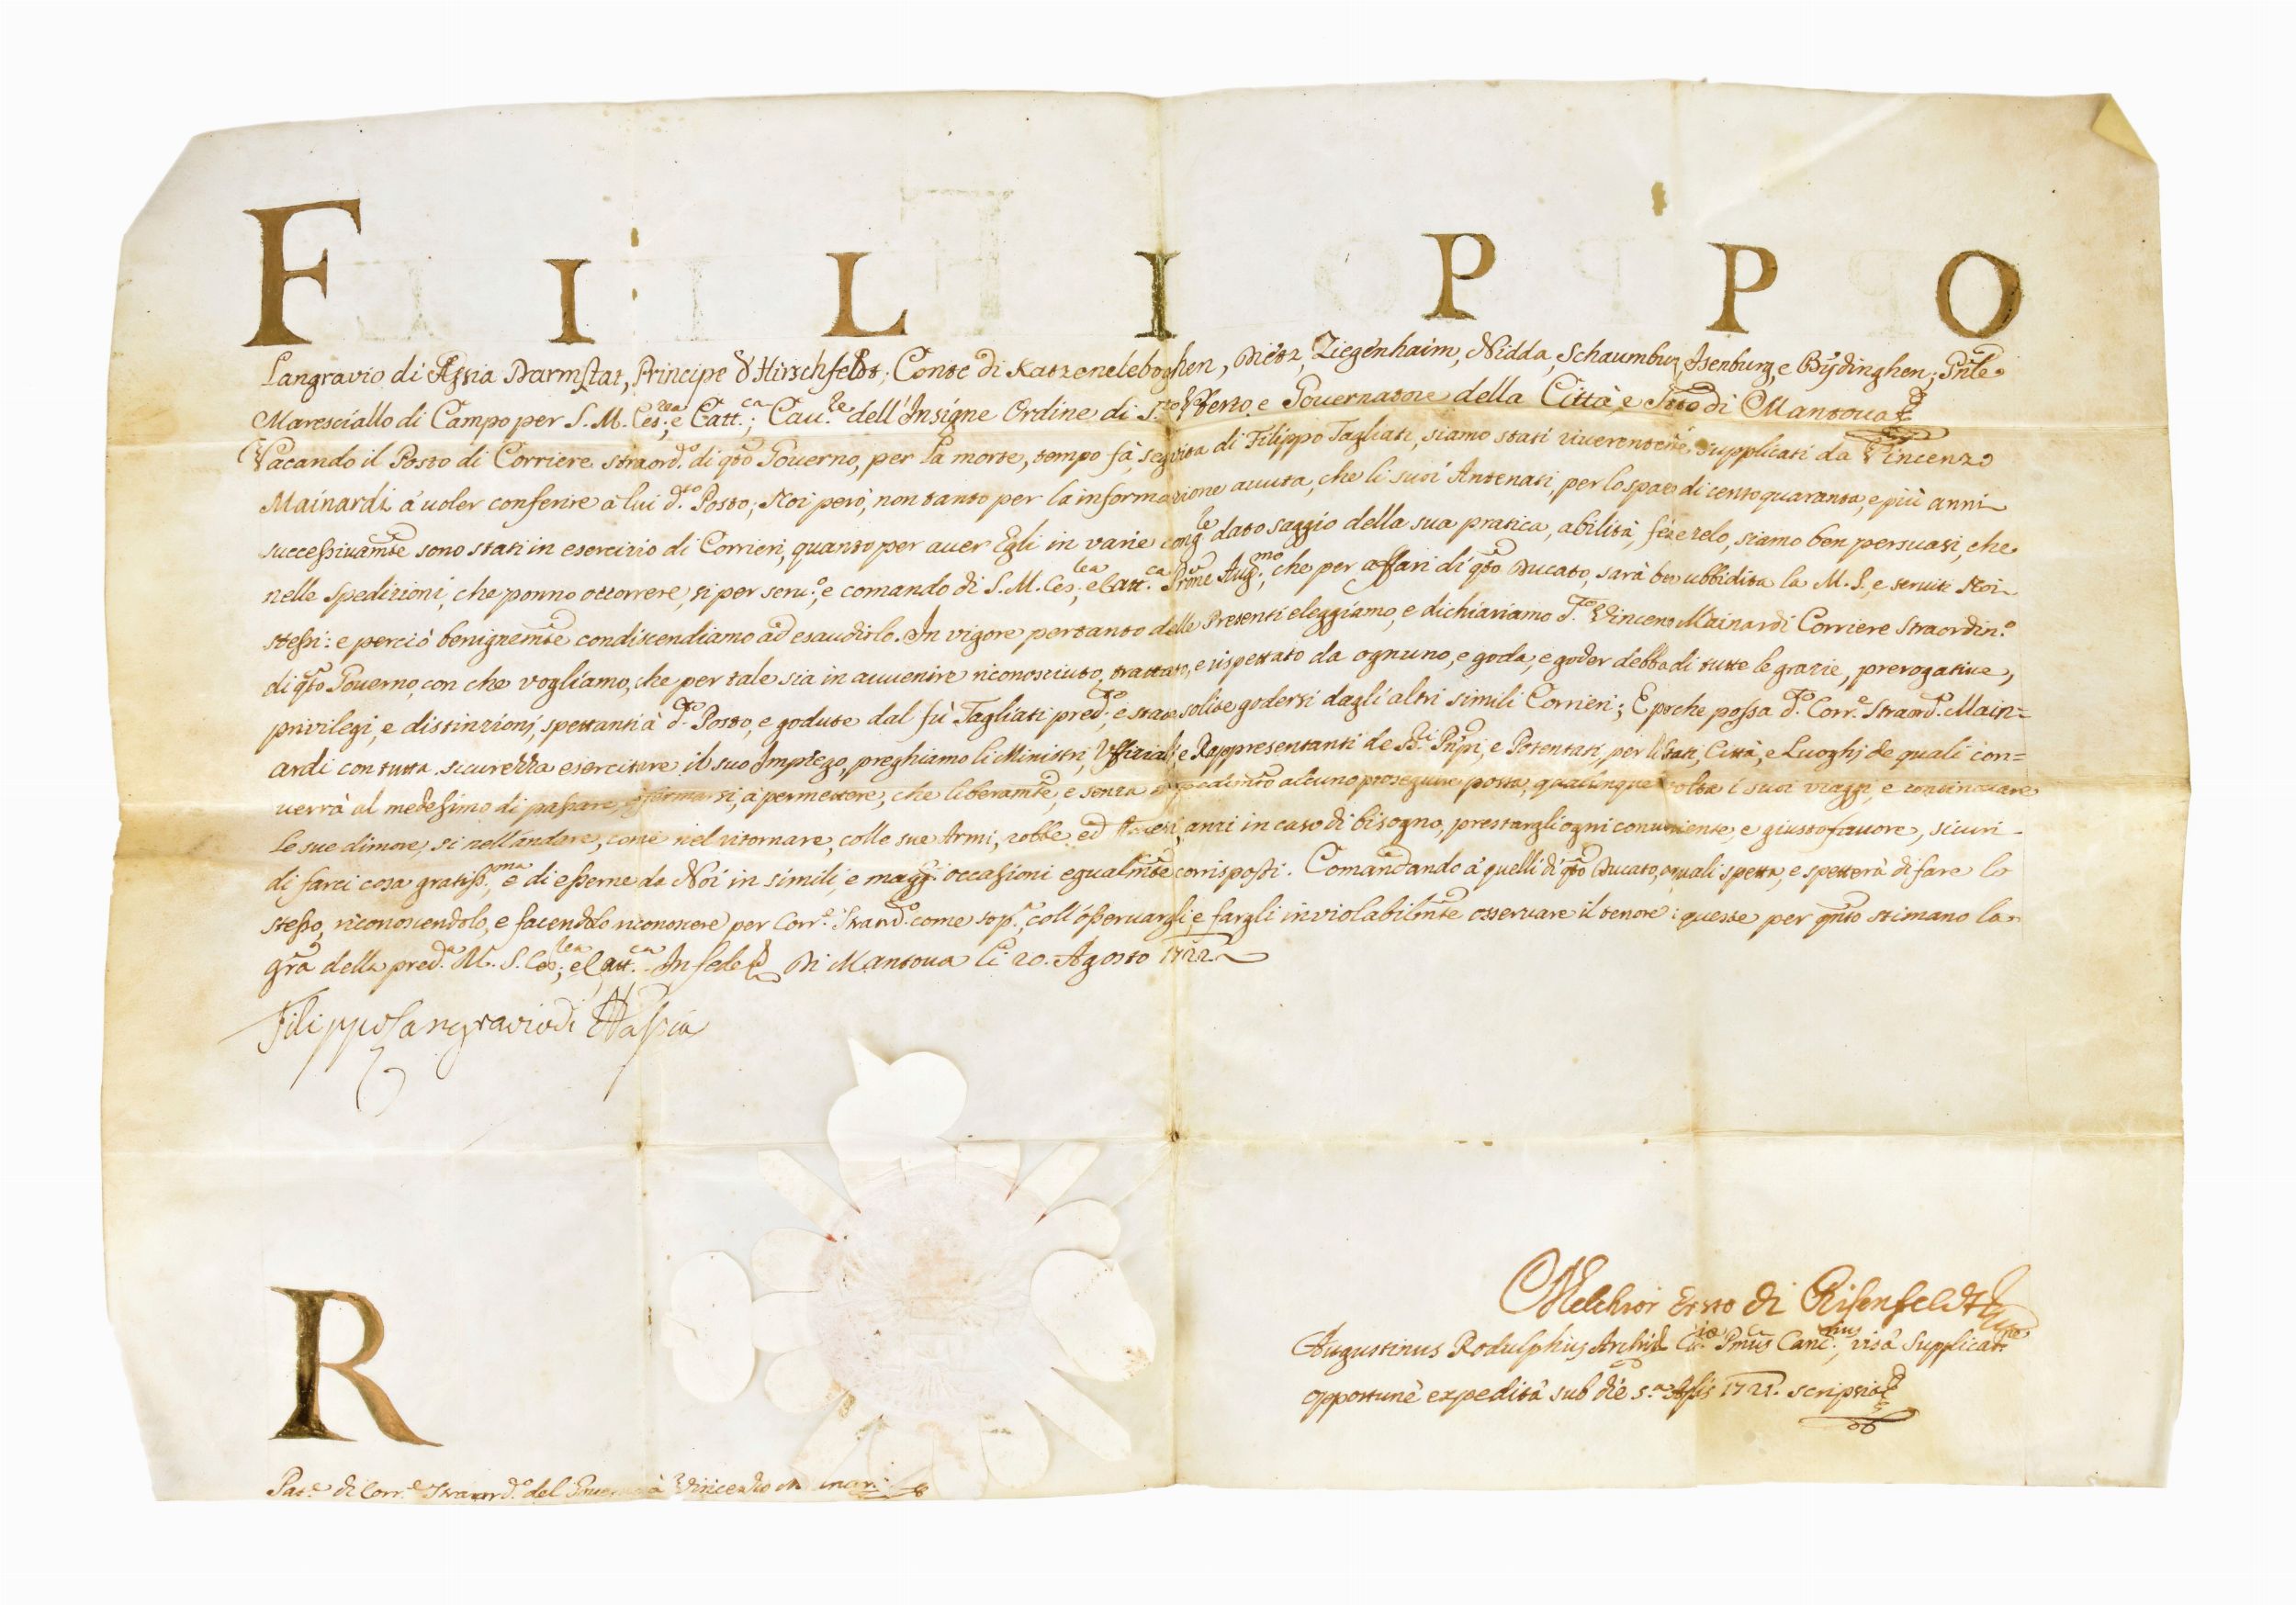 FILIPPO
Langravio di Assia Darmstat, Principe d'Hirschfeldt; Conte di Katzeneleboghen, Dietz, Ziegenhaim, Nidda, Schaumburg, Isenburg, e Bÿdinghen; Pnle
Maresciallo di Campo per S. M. Ces.rea, e Catt.ca; Cau.re dell'Insigne Ordine di S.to Vberto, e Gouernatore della Città, e Stto di Mantoua
Vacando il Posto di Corriere straord.o di qto Gouerno, per la morte, tempo fà, seguita di Filippo Tagliati, siamo stati riuerentemte supplicati da Vincenzo
Mainardi à uoler conferire à lui d.to Posto; Noi però, non tanto per la informazione auuta, che li suoi Antenati, per lo spao di cento quaranta, e più anni
successiuamte sono stati in esercizio di Corrieri, quanto per auer Egli in varie cong.re dato saggio della sua pratica, abilità, fé, e zelo, siamo ben persuasi, che
nelle spedizioni, che ponno occorrere, sì per seru.o, e comando di S. M. Ces.rea, e Catt.ca Prone Aug.mo, che per affari di qto Ducato, sarà ben ubbidita la M. S., e seruiti Noi
stessi: e perciò benignemte condiscendiamo ad esaudirlo. In vigore pertanto delle Presenti eleggiamo, e dichiariamo d.to Vincenzo Mainardi Corriere Straordin.o
di qto Gouerno, con che vogliamo, che per tale sia in auuenire riconosciuto, trattato, e rispettato da ognuno, e goda, e goder debba di tutte le grazie, prerogatiue,
priuilegi, e distinzioni, spettanti à d.to Posto, e godute dal fù Tagliati pred.to, e state solite godersi dagli altri simili Corrieri; E poche possa d.to Corr.e Straord.o Main=
ardi con tutta sicurezza esercitare il suo Impiego, preghiamo li Ministri, Vffiziali, e Rappresentanti de Pnpi, e Potentati, per li Stati, Città, e Luoghi de quali con=
uerrà al medesimo di passare, ò fermarsi, à permettere, che liberamte, e senza impedimto alcuno proseguire possa, qualunque volta i suoi viaggi, e continouare
le sue dimore, sì nell'andare, come nel ritornare, colle sue Armi, robbe, ed Arnesi, anzi in caso di bisogno, prestargli ogni conueniente, e giusto fauore, sicuri
di farci cosa gratiss.ma, e di esserne da Noi in simili, e magg.i occasioni egualmte corrisposti. Comandando à quelli di qto Ducato, à quali spetta, e spetterà di fare lo
stesso, riconoscendolo, e facendolo riconoscere per Corr.e Straord.o come sop.a, coll'osseruargli, e fargli inviolabilmte osseruare il tenore: queste per qnto stimano la
gra della pred.a M. S. Ces.rea, e Catt.ca In fede Di Mantoua li 20. Agosto 1722.
Filippo Langravio di Hassia
Melchior Ersto di Risenfeldt
Augustinus Rodulphius Pmus Canc.rius, visâ Supplicat.ne
opportunè expeditâ sub die 1722. scripsit
R
Pat.e di Corr.e Straord.o del à Vincenzo